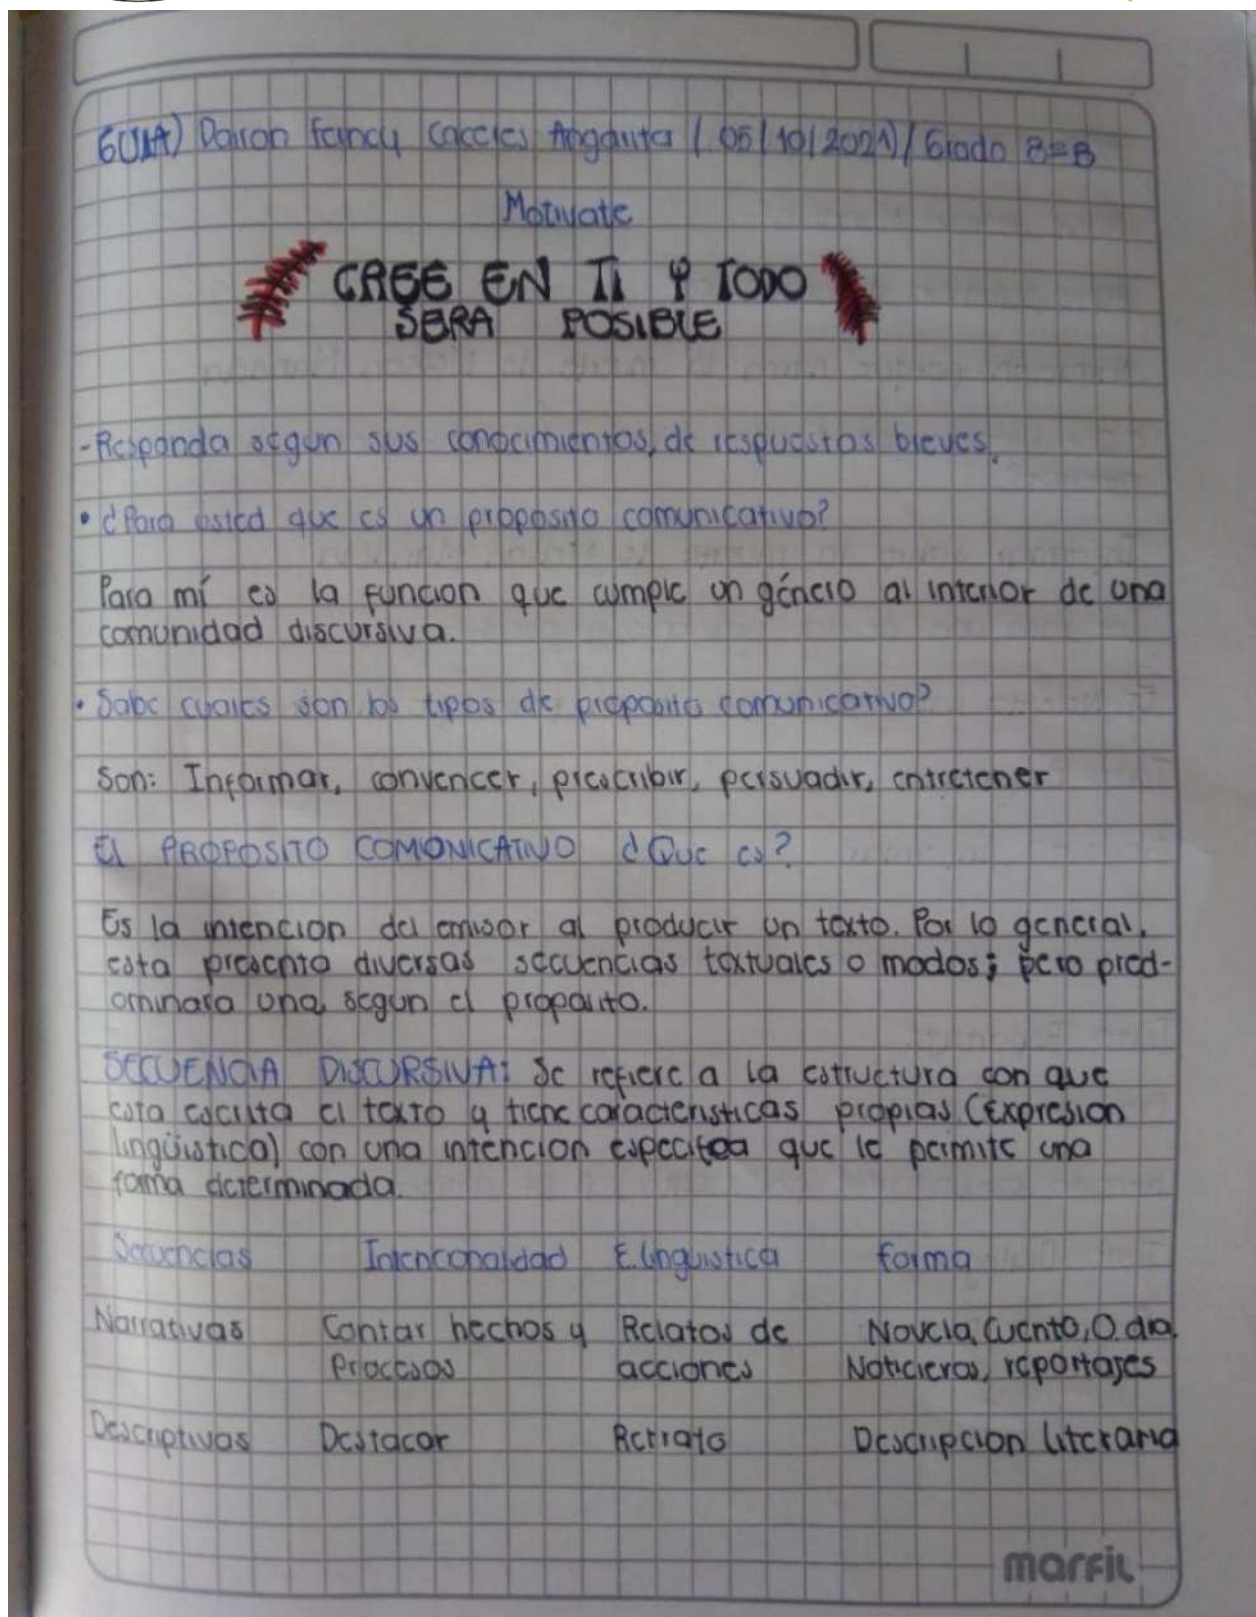 GUIA) Dairon Fancy Caceres Angarita / 05/10/2021) / Grado 8=B
Motivate
CREE EN TI Y TODO
SERA POSIBLE
-Responda segun sus conocimientos, de respuestas breves.
• ¿Para usted que es un proposito comunicativo?
Para mí es la funcion que cumple un género al interior de una
comunidad discursiva.
• Sabe cuales son los tipos de proposito comunicativo?
Son: Informar, convencer, prescribir, persuadir, entretener
El PROPOSITO COMONICATIVO ¿Que es?
Es la intencion del emisor al producir un texto. Por lo general,
esta presenta diversas secuencias textuales o modos; pero pred-
ominara una segun el proposito.
SECUENCIA DISCURSIVA: Se refiere a la estructura con que
esta escrita el texto y tiene caracteristicas propias (Expresion
lingüistica) con una intencion especifica que le permite una
forma determinada.
Secuencias Intencionalidad E.linguistica forma
Narrativas Contar hechos y Relatos de Novela, Cuento, O. dra.
Procesos acciones Noticieros, reportajes
Descriptivas Destacar Retrato Descripcion Literaria
marfil